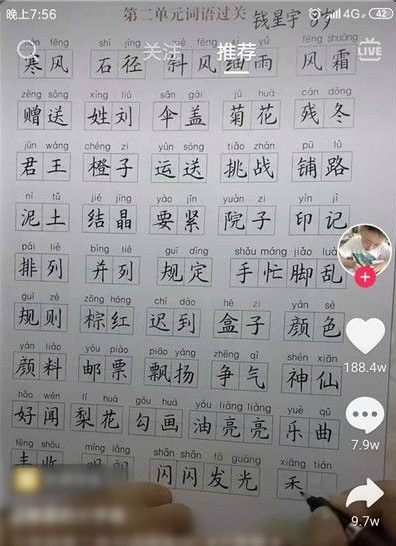 晚上7:56 4G 42
第二单元词语过关 钱星宇 8岁
关注 推荐 LIVE
fēng shí jìng fēng yǔ fēng shuāng
寒风 石径 斜风细雨 风霜
zèng sòng xìng liú sǎn gài jú huā cán dōng
赠送 姓刘 伞盖 菊花 残冬
jūn wáng chéng zi yùn sòng tiǎo zhàn pū lù
君王 橙子 运送 挑战 铺路
ní tǔ jié jīng yào jǐn yuàn zi yìn jì
泥土 结晶 要紧 院子 印记
pái liè bìng liè guī dìng shǒu máng jiǎo luàn
排列 并列 规定 手忙脚乱
guī zé zōng hóng chí dào hé zi yán sè
规则 棕红 迟到 盒子 颜色
yán liào yóu piào piāo yáng zhēng qì shén xiān
颜料 邮票 飘扬 争气 神仙
188.4w
hǎo wén lí huā gōu huà yóu liàng liàng yuè qǔ
好闻 梨花 勾画 油亮亮 乐曲
7.9w
fēng shōu míng lǎng fā guāng xiāng tián
闪闪发光 禾
9.7w